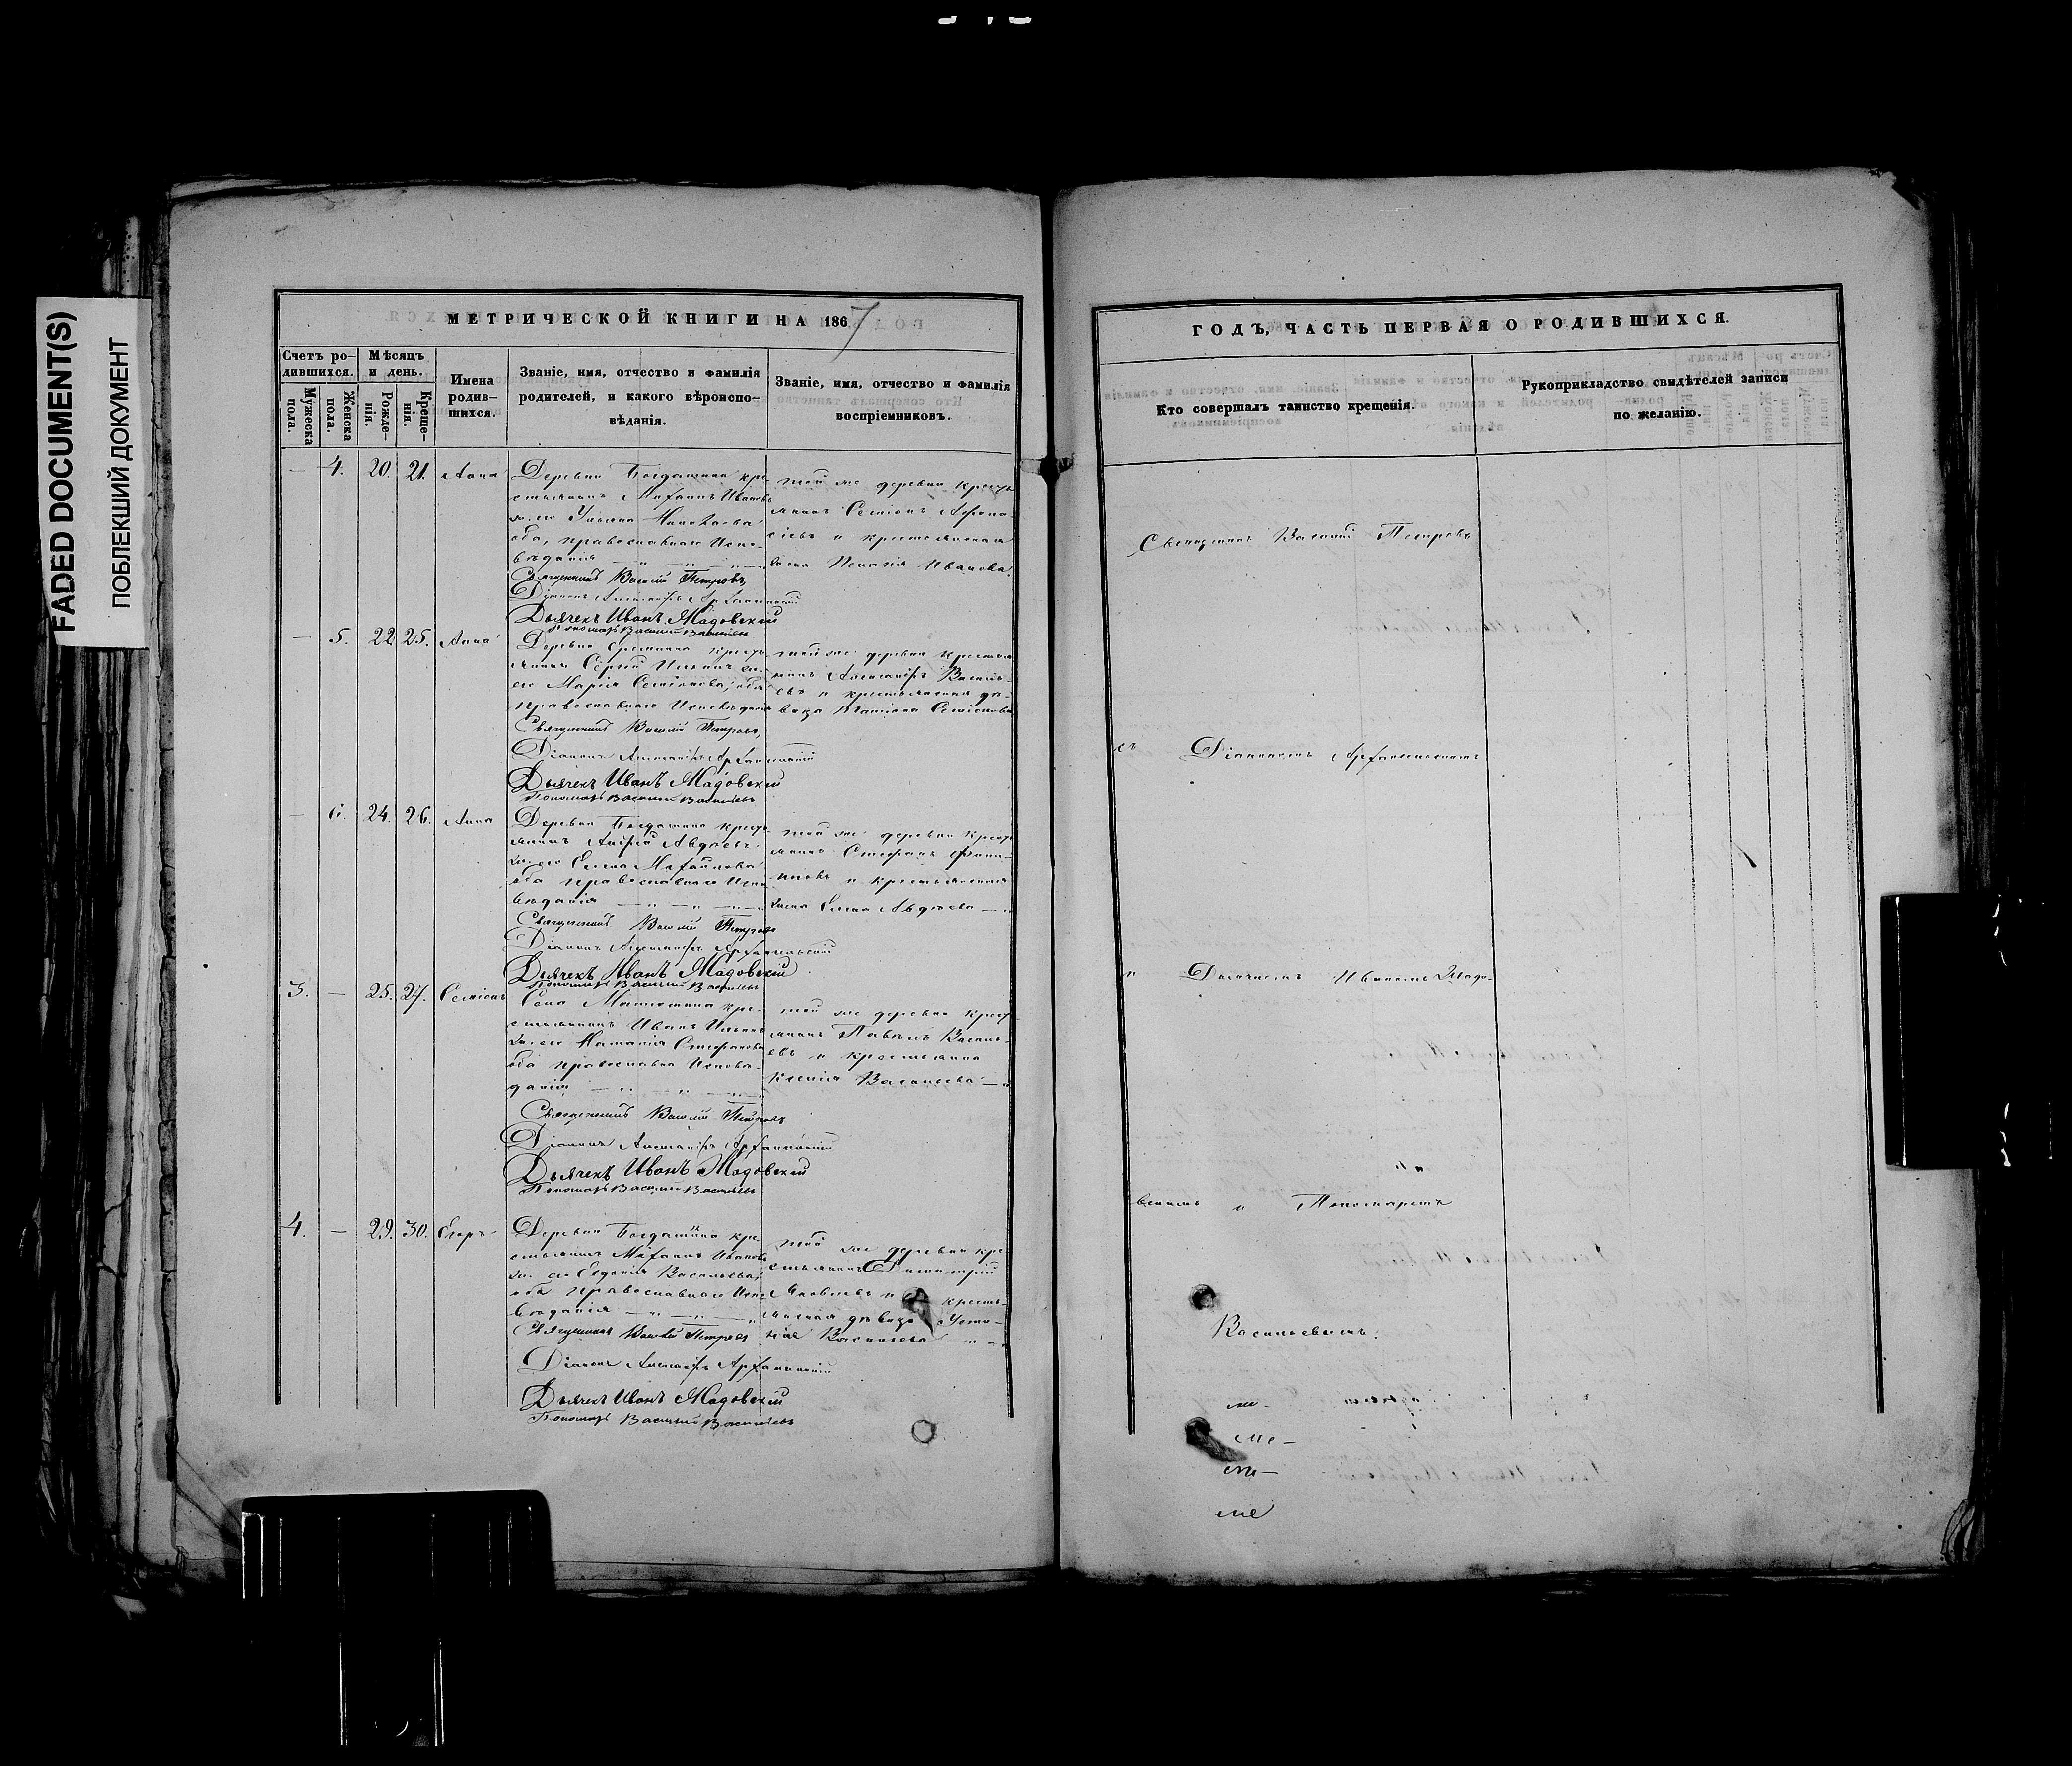 FADED DOCUMENT(S)
ПОБЛЕКШИЙ ДОКУМЕНТ
МЕТРИЧЕСКОЙ КНИГИ НА 1867
Счетъ ро-
дившихся.
Мужеска
пола.
Женска
пола.
Мѣсяцъ
и день.
Рожде-
нія.
Креще-
нія.
Имена
родив-
шихся.
Званіе, имя, отчество и фамилія
родителей, и какого вѣроиспо-
вѣданія.
Званіе, имя, отчество и фамилія
воспріемниковъ.
— 4. 20. 21. Анна
Деревни Богдашкина кре
стьянинъ Михаилъ Ивановъ
ж. его Ульяна
оба, православнаго Испо-
вѣданія
Священникъ Василій Петровъ,
Діаконъ Александръ Архангельскій
Дьячекъ Иванъ Мадовскій
Пономарь Василій Васильевъ
той же деревни кресть
янинъ Семіонъ Афона-
сіевъ и крестьянская
жена Иванова.
— 5. 22 25. Анна
Деревни кресть
янинъ Сергій Ильинъ ж.
его Марія Семіонова, оба
православнаго Исповѣданія
Священникъ Василій Петровъ,
Діаконъ Александръ Архангельскій
Дьячекъ Иванъ Мадовскій
Пономарь Василій Васильевъ
той же деревни крестья
нинъ Александръ Василь-
евъ и крестьянская дѣ-
вица Татіана Семіонова
— 6. 24. 26. Анна
Деревни Богдашкина кресть
янинъ Андрей Авдѣевъ
ж. его Елена Михайлова
оба православнаго Испо
вѣданія
Священникъ Василій Петровъ
Діаконъ Александръ Архангельскій
Дьячекъ Иванъ Мадовскій
Пономарь Василій Васильевъ
той же деревни кресть
янинъ Стефанъ Фили-
повъ и крестьянская
жена Елена Авдѣева
3. — 25. 27. Семіонъ
Села кре-
стьянинъ Иванъ Ильинъ
ж. его Наталія Стефанова
оба православна Исповѣ-
данія
Священникъ Василій Петровъ
Діаконъ Александръ Архангельскій
Дьячекъ Иванъ Мадовскій
Пономарь Василій Васильевъ
той же деревни кресть
янинъ Павелъ Василь-
евъ и крестьянка
Ксенія Васильева
4. — 29. 30. Егоръ
Деревни Богдашкина кре
стьянинъ Михаилъ Ивановъ
ж. его Евдокія Васильева,
оба православнаго Испо
вѣданія
Священникъ Василій Петровъ
Діаконъ Александръ Архангельскій
Дьячекъ Иванъ Мадовскій
Пономарь Василій Васильевъ
той же деревни кре
стьянинъ Димитрій
Яковлевъ и кресть-
янская дѣвица Усти-
нія Васильева
ГОДЪ, ЧАСТЬ ПЕРВАЯ О РОДИВШИХСЯ.
Кто совершалъ таинство крещенія.
Рукоприкладство свидѣтелей записи
по желанію.
Священникъ Василій Петровъ
съ Діакономъ Архангельскимъ
и Дьячкомъ Иваномъ Мадо-
вскимъ и Пономаремъ
Васильевымъ.